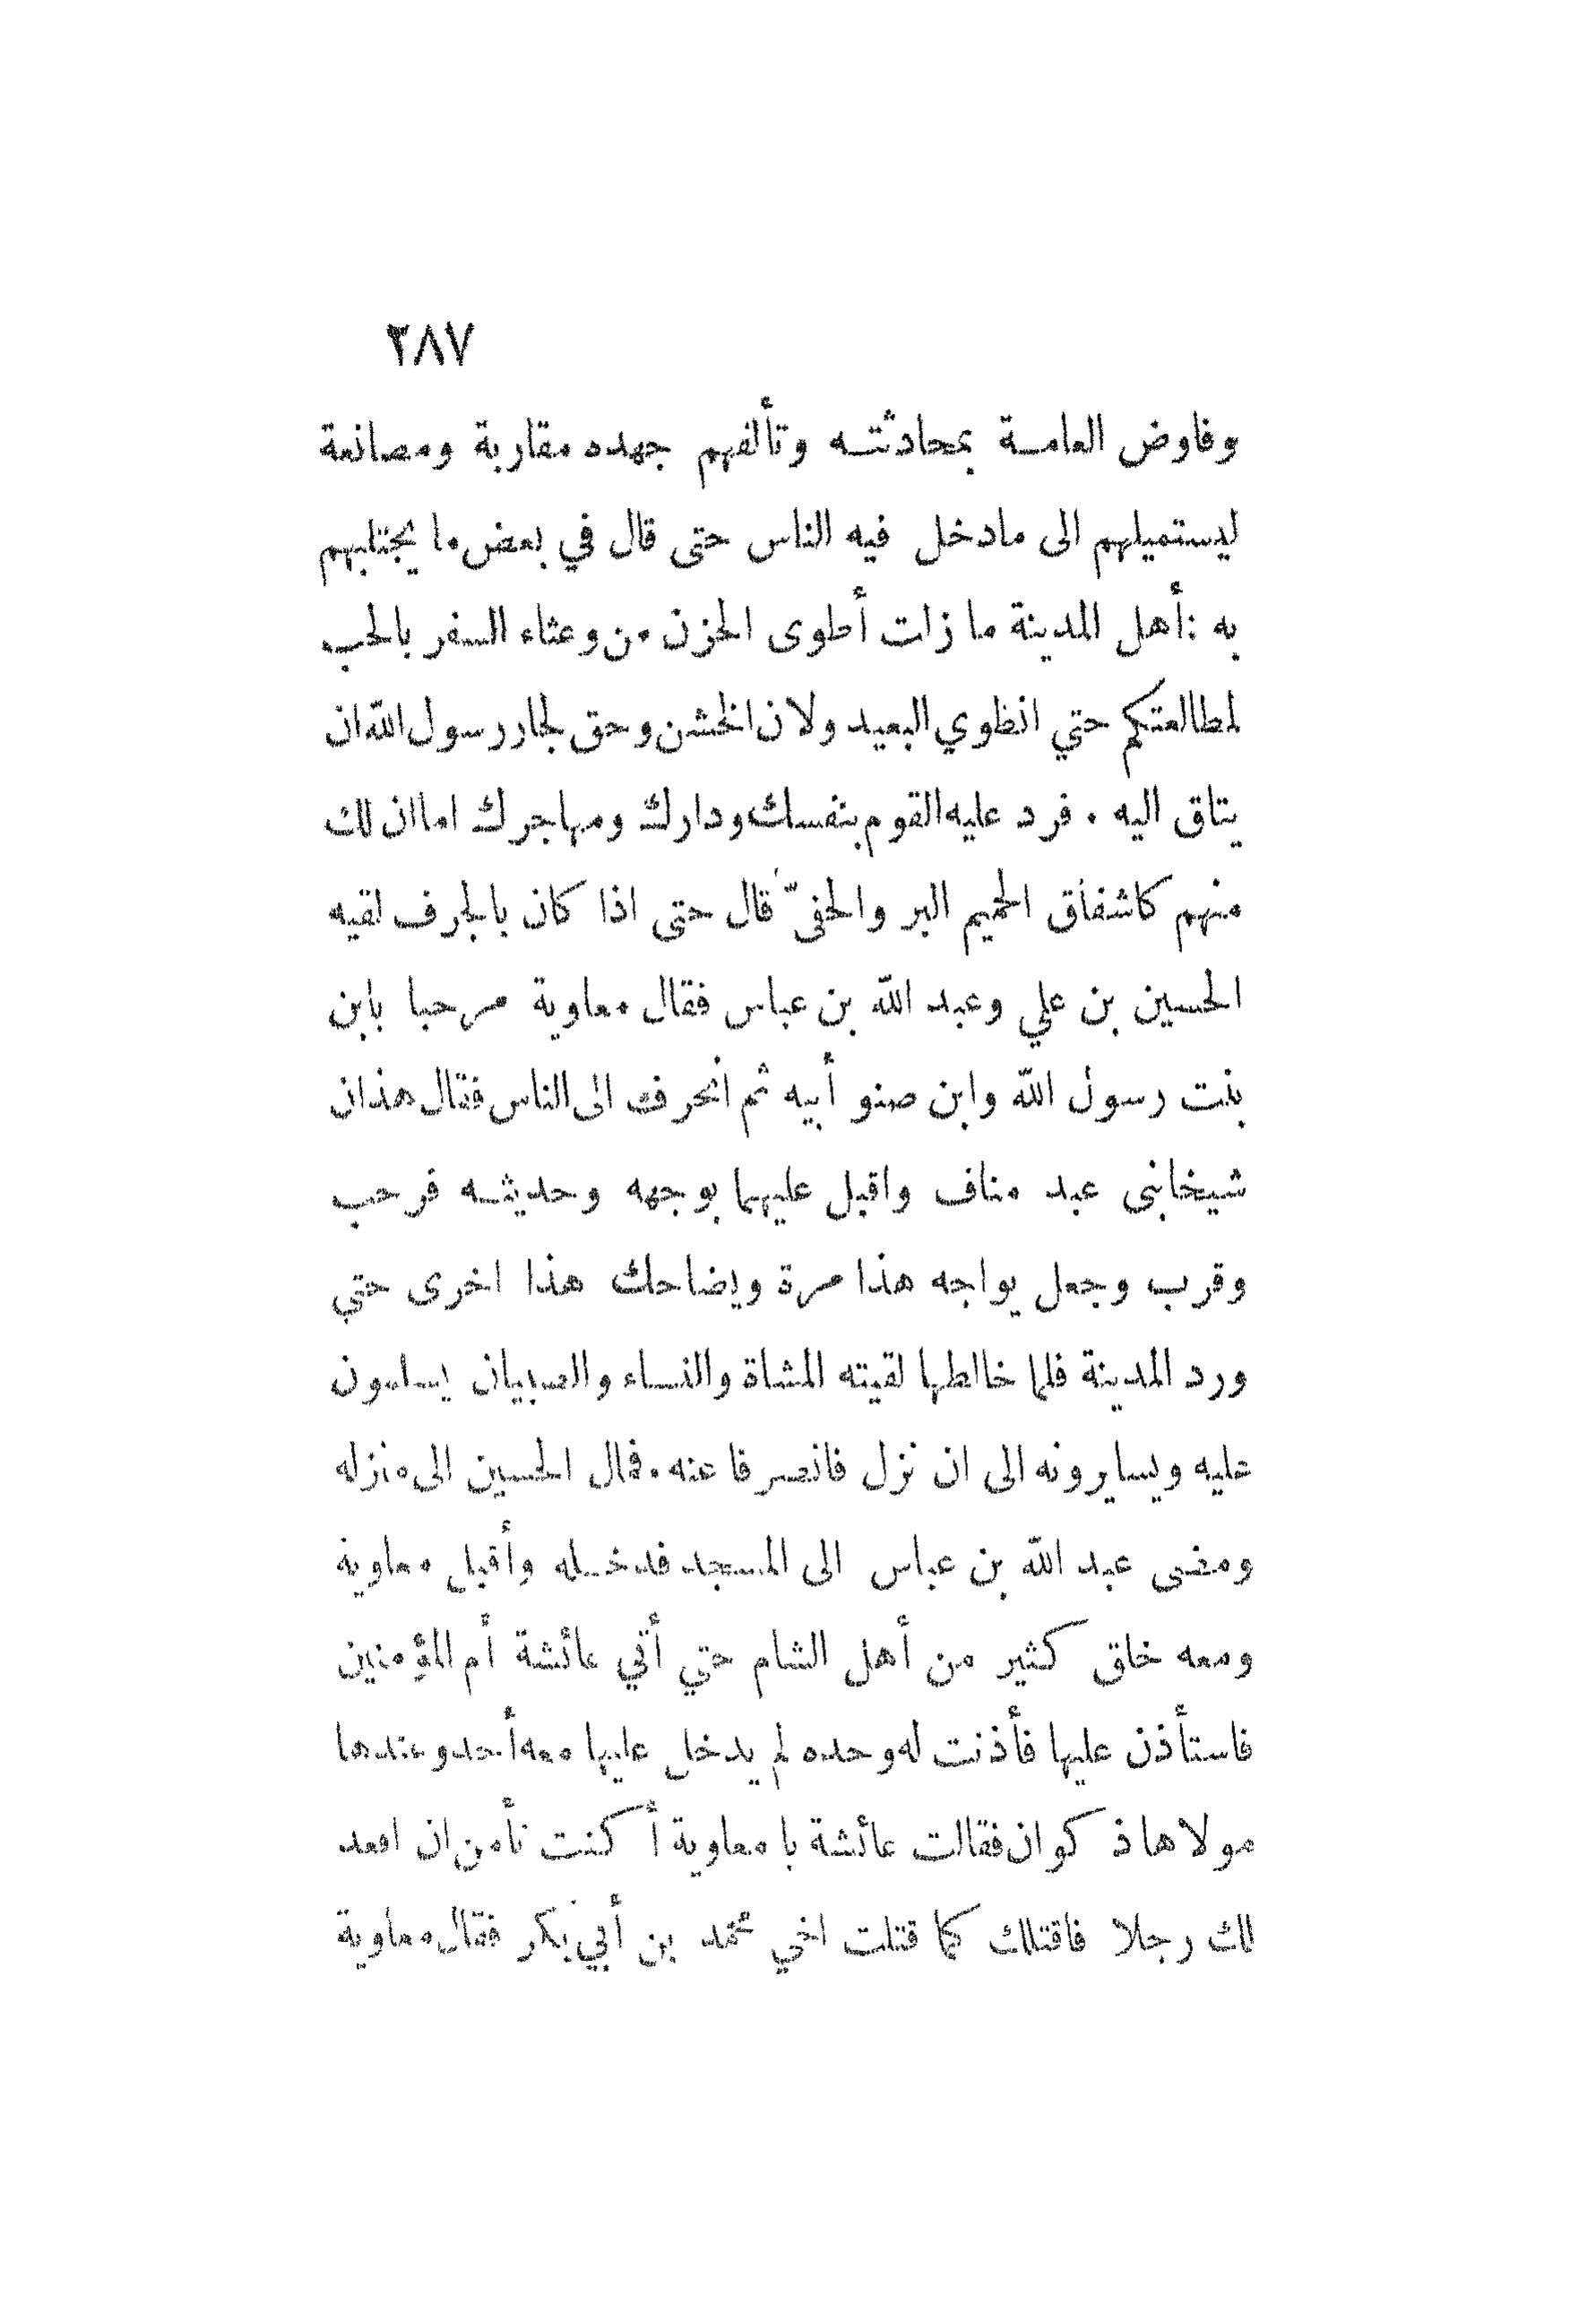 ٢٨٧
وفاوض العامة بمحادثته وتألفهم جهده مقاربة ومصانعة
ليستميلهم الى مادخل فيه الناس حتى قال في بعض ما يجتلبهم
به : أهل المدينة ما زلت أطوى الحزن من وعثاء السفر بالحب
لمطالعتكم حتي انطوي البعيد ولان الخشن وحق لجار رسول الله ان
يتاق اليه . فرد عليه القوم بنفسك ودارك ومهاجرك اما ان لك
منهم كاشفاق الحميم البر والحفيّ قال حتى اذا كان بالجرف لقيه
الحسين بن علي وعبد الله بن عباس فقال معاوية مرحبا بابن
بنت رسول الله وابن صنو أبيه ثم انحرف الى الناس فقال هذان
شيخا بنى عبد مناف واقبل عليهما بوجهه وحديثه فرحب
وقرب وجعل يواجه هذا مرة ويضاحك هذا اخرى حتي
ورد المدينة فلما خالطها لقيته المشاة والنساء والصبيان يسلمون
عليه ويسايرونه الى ان نزل فانصرفا عنه . فمال الحسين الى منزله
ومضى عبد الله بن عباس الى المسجد فدخله وأقبل معاوية
ومعه خلق كثير من أهل الشام حتي أتي عائشة أم المؤمنين
فاستأذن عليها فأذنت له وحده لم يدخل عليها معه أحد وعندها
مولاها ذكوان فقالت عائشة يا معاوية أكنت تأمن ان اقعد
لك رجلا فاقتلك كما قتلت اخي محمد بن أبي بكر فقال معاوية